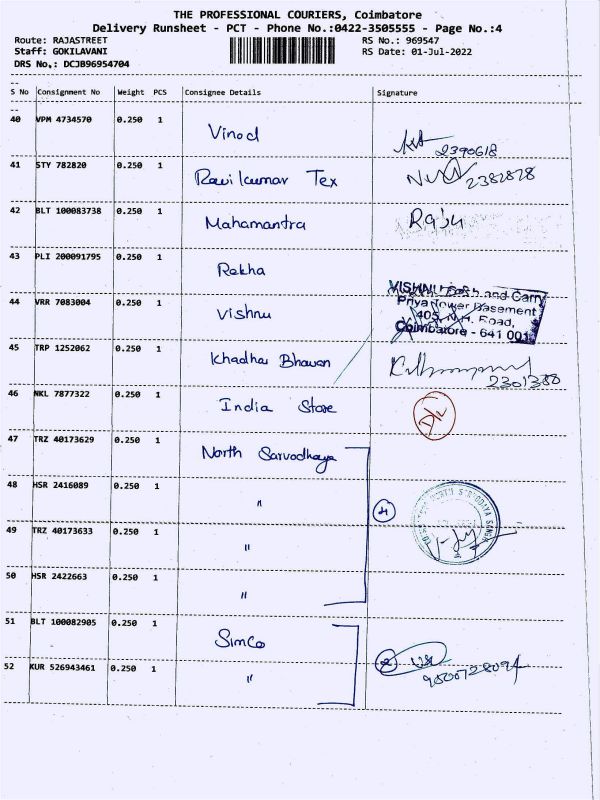 THE PROFESSIONAL COURIERS, Coimbatore
Delivery Runsheet - PCT - Phone No.:0422-3505555 - Page No.:4
Route: RAJASTREET RS No.: 969547
Staff: GOKILAVANI RS Date: 01-Jul-2022
DRS No.: DCJB96954704
--
S No Consignment No Weight PCS Consignee Details Signature
--
40 VPM 4734570 0.250 1 Vinod 2390618
41 STY 782820 0.250 1 Ravikumar Tex 2382828
42 BLT 100083738 0.250 1 Mahamantra Raju
43 PLI 200091795 0.250 1 Rekha
44 VRR 7083004 0.250 1 Vishnu
VISHNU Cash and Carry
Priya Tower Basement
405, N.H. Road,
Coimbatore - 641 001
45 TRP 1252062 0.250 1 Khadhai Bhavan 2301388
46 NKL 7877322 0.250 1 India Store D/L
47 TRZ 40173629 0.250 1 North Sarvodhaya
48 HSR 2416089 0.250 1 " 4
49 TRZ 40173633 0.250 1 "
50 HSR 2422663 0.250 1 "
51 BLT 100082905 0.250 1 Simco
52 KUR 526943461 0.250 1 " 2